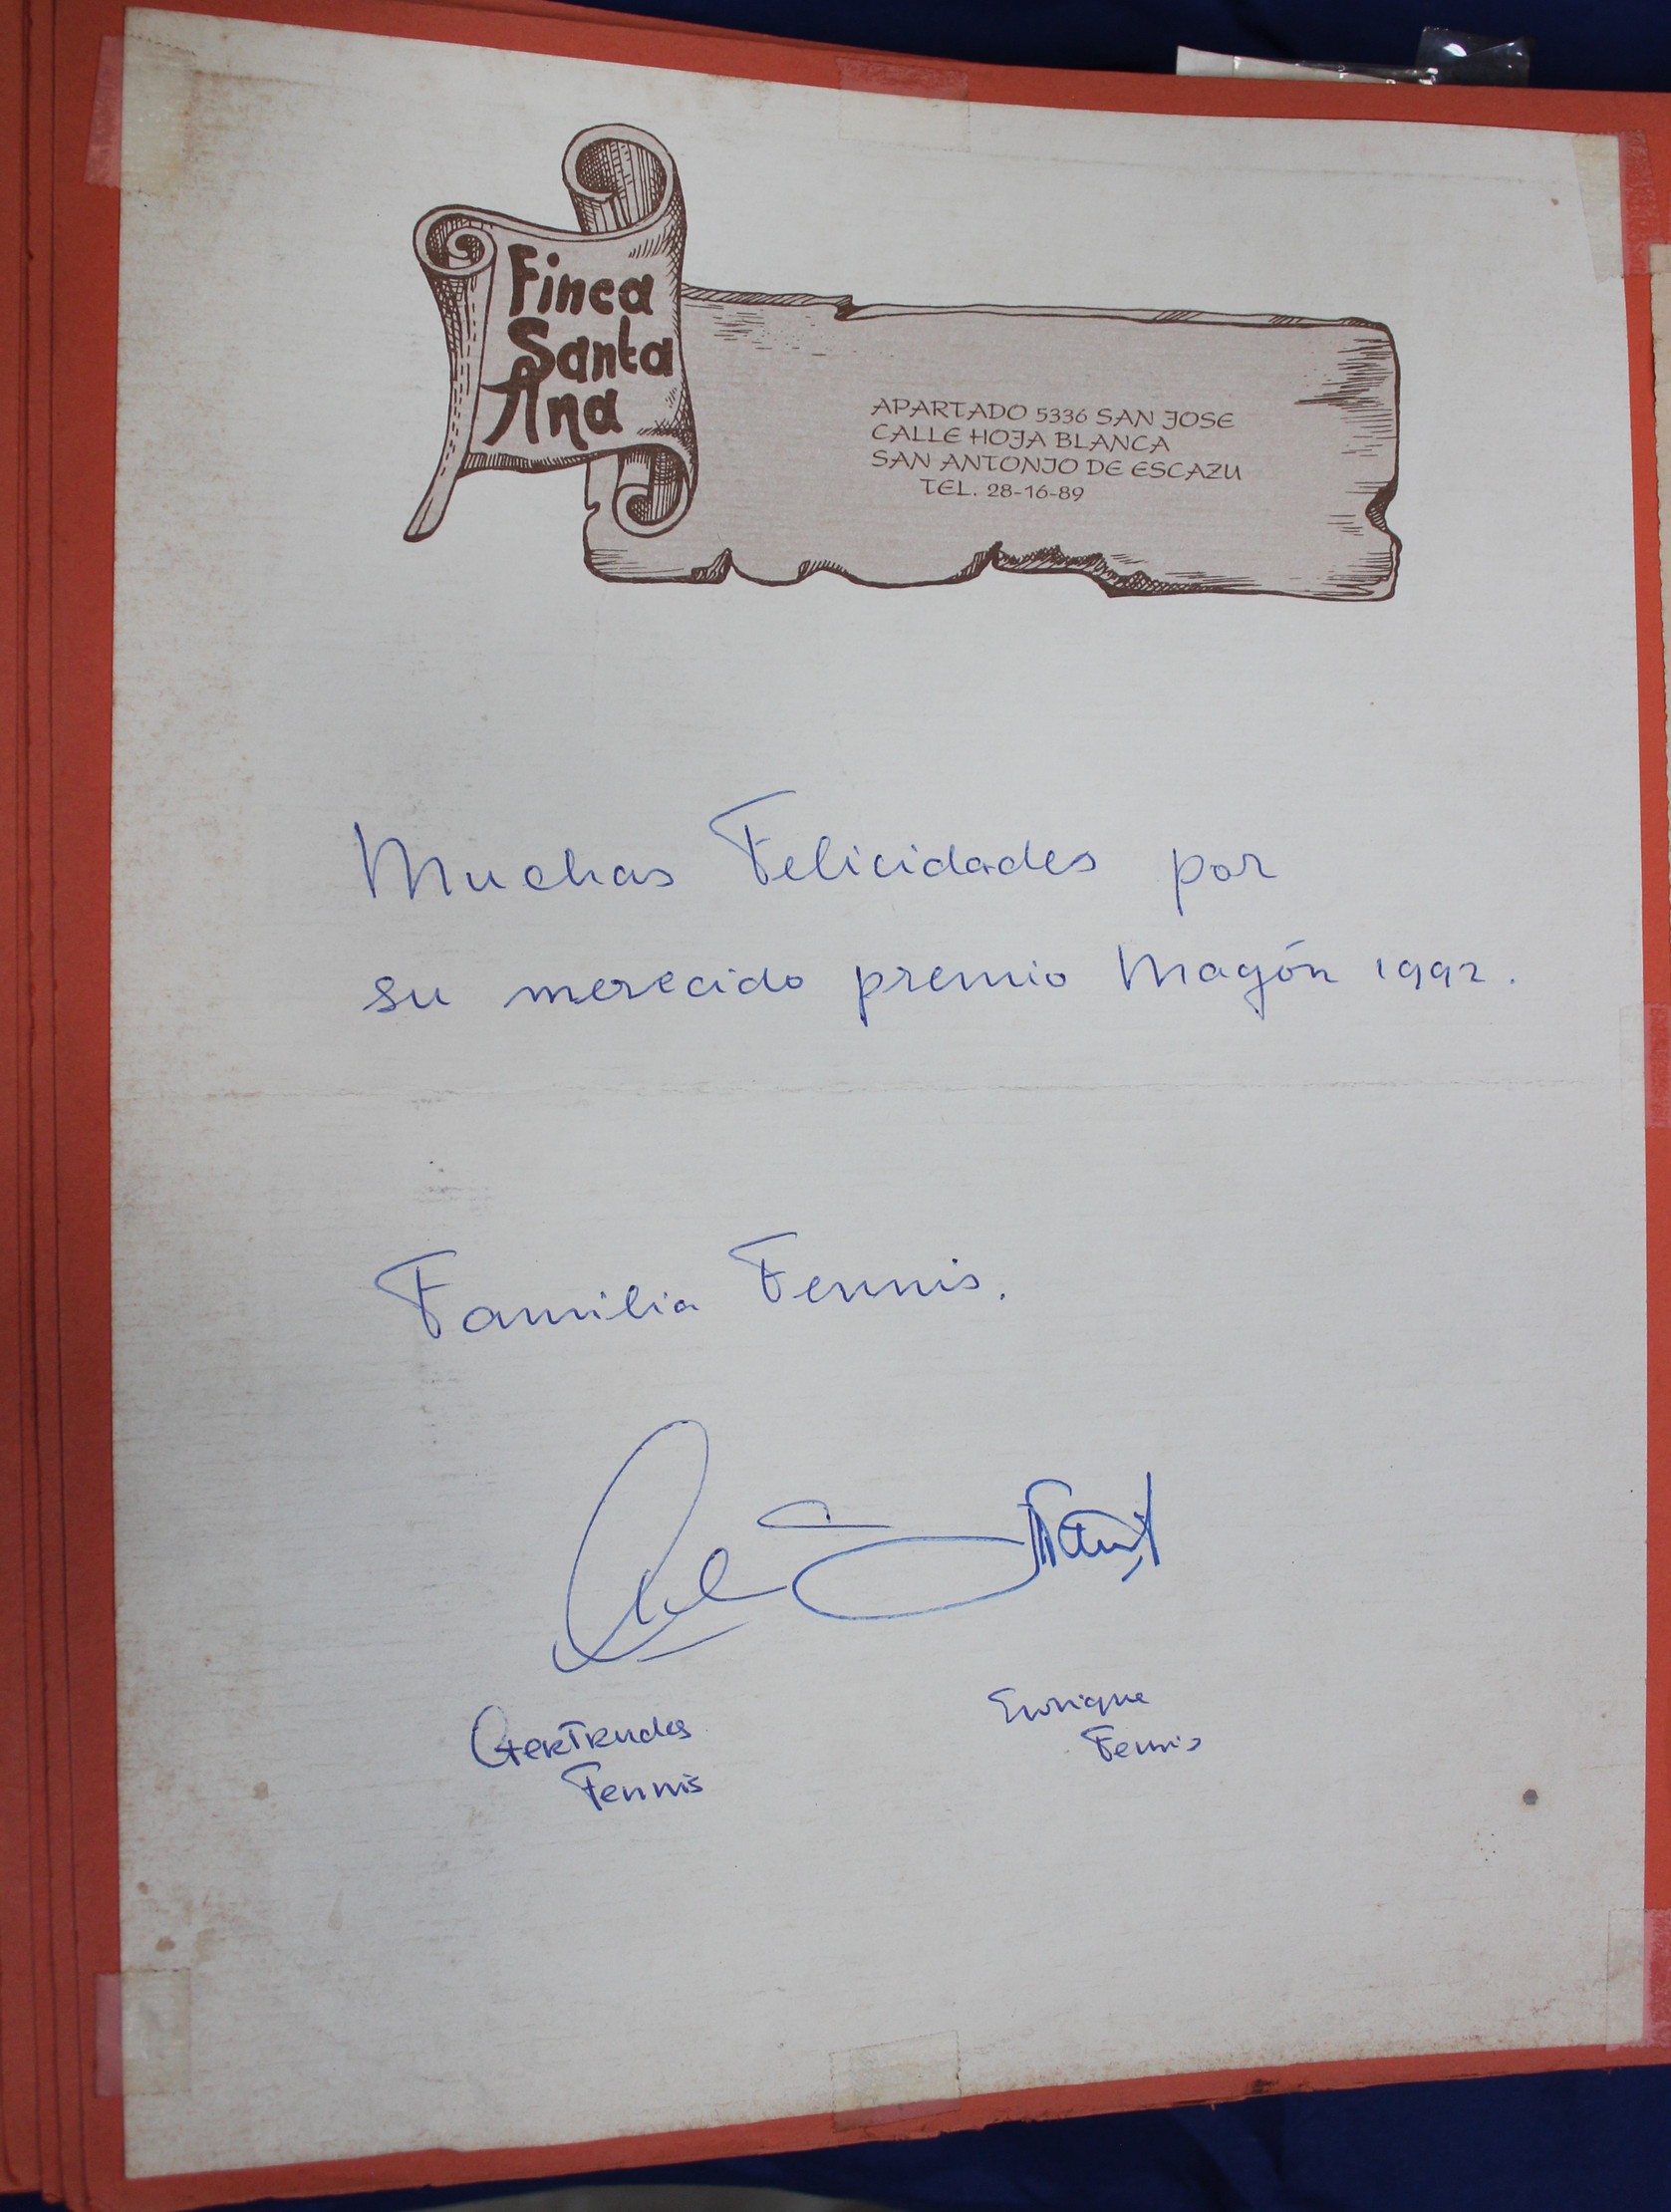 Finca
Santa
Ana
APARTADO 5336 SAN JOSE
CALLE HOJA BLANCA
SAN ANTONIO DE ESCAZU
TEL. 28-16-89
Muchas Felicidades por
su merecido premio Magón 1992.
Familia Fennis.
Gertrudes
Fennis
Enrique
Fennis